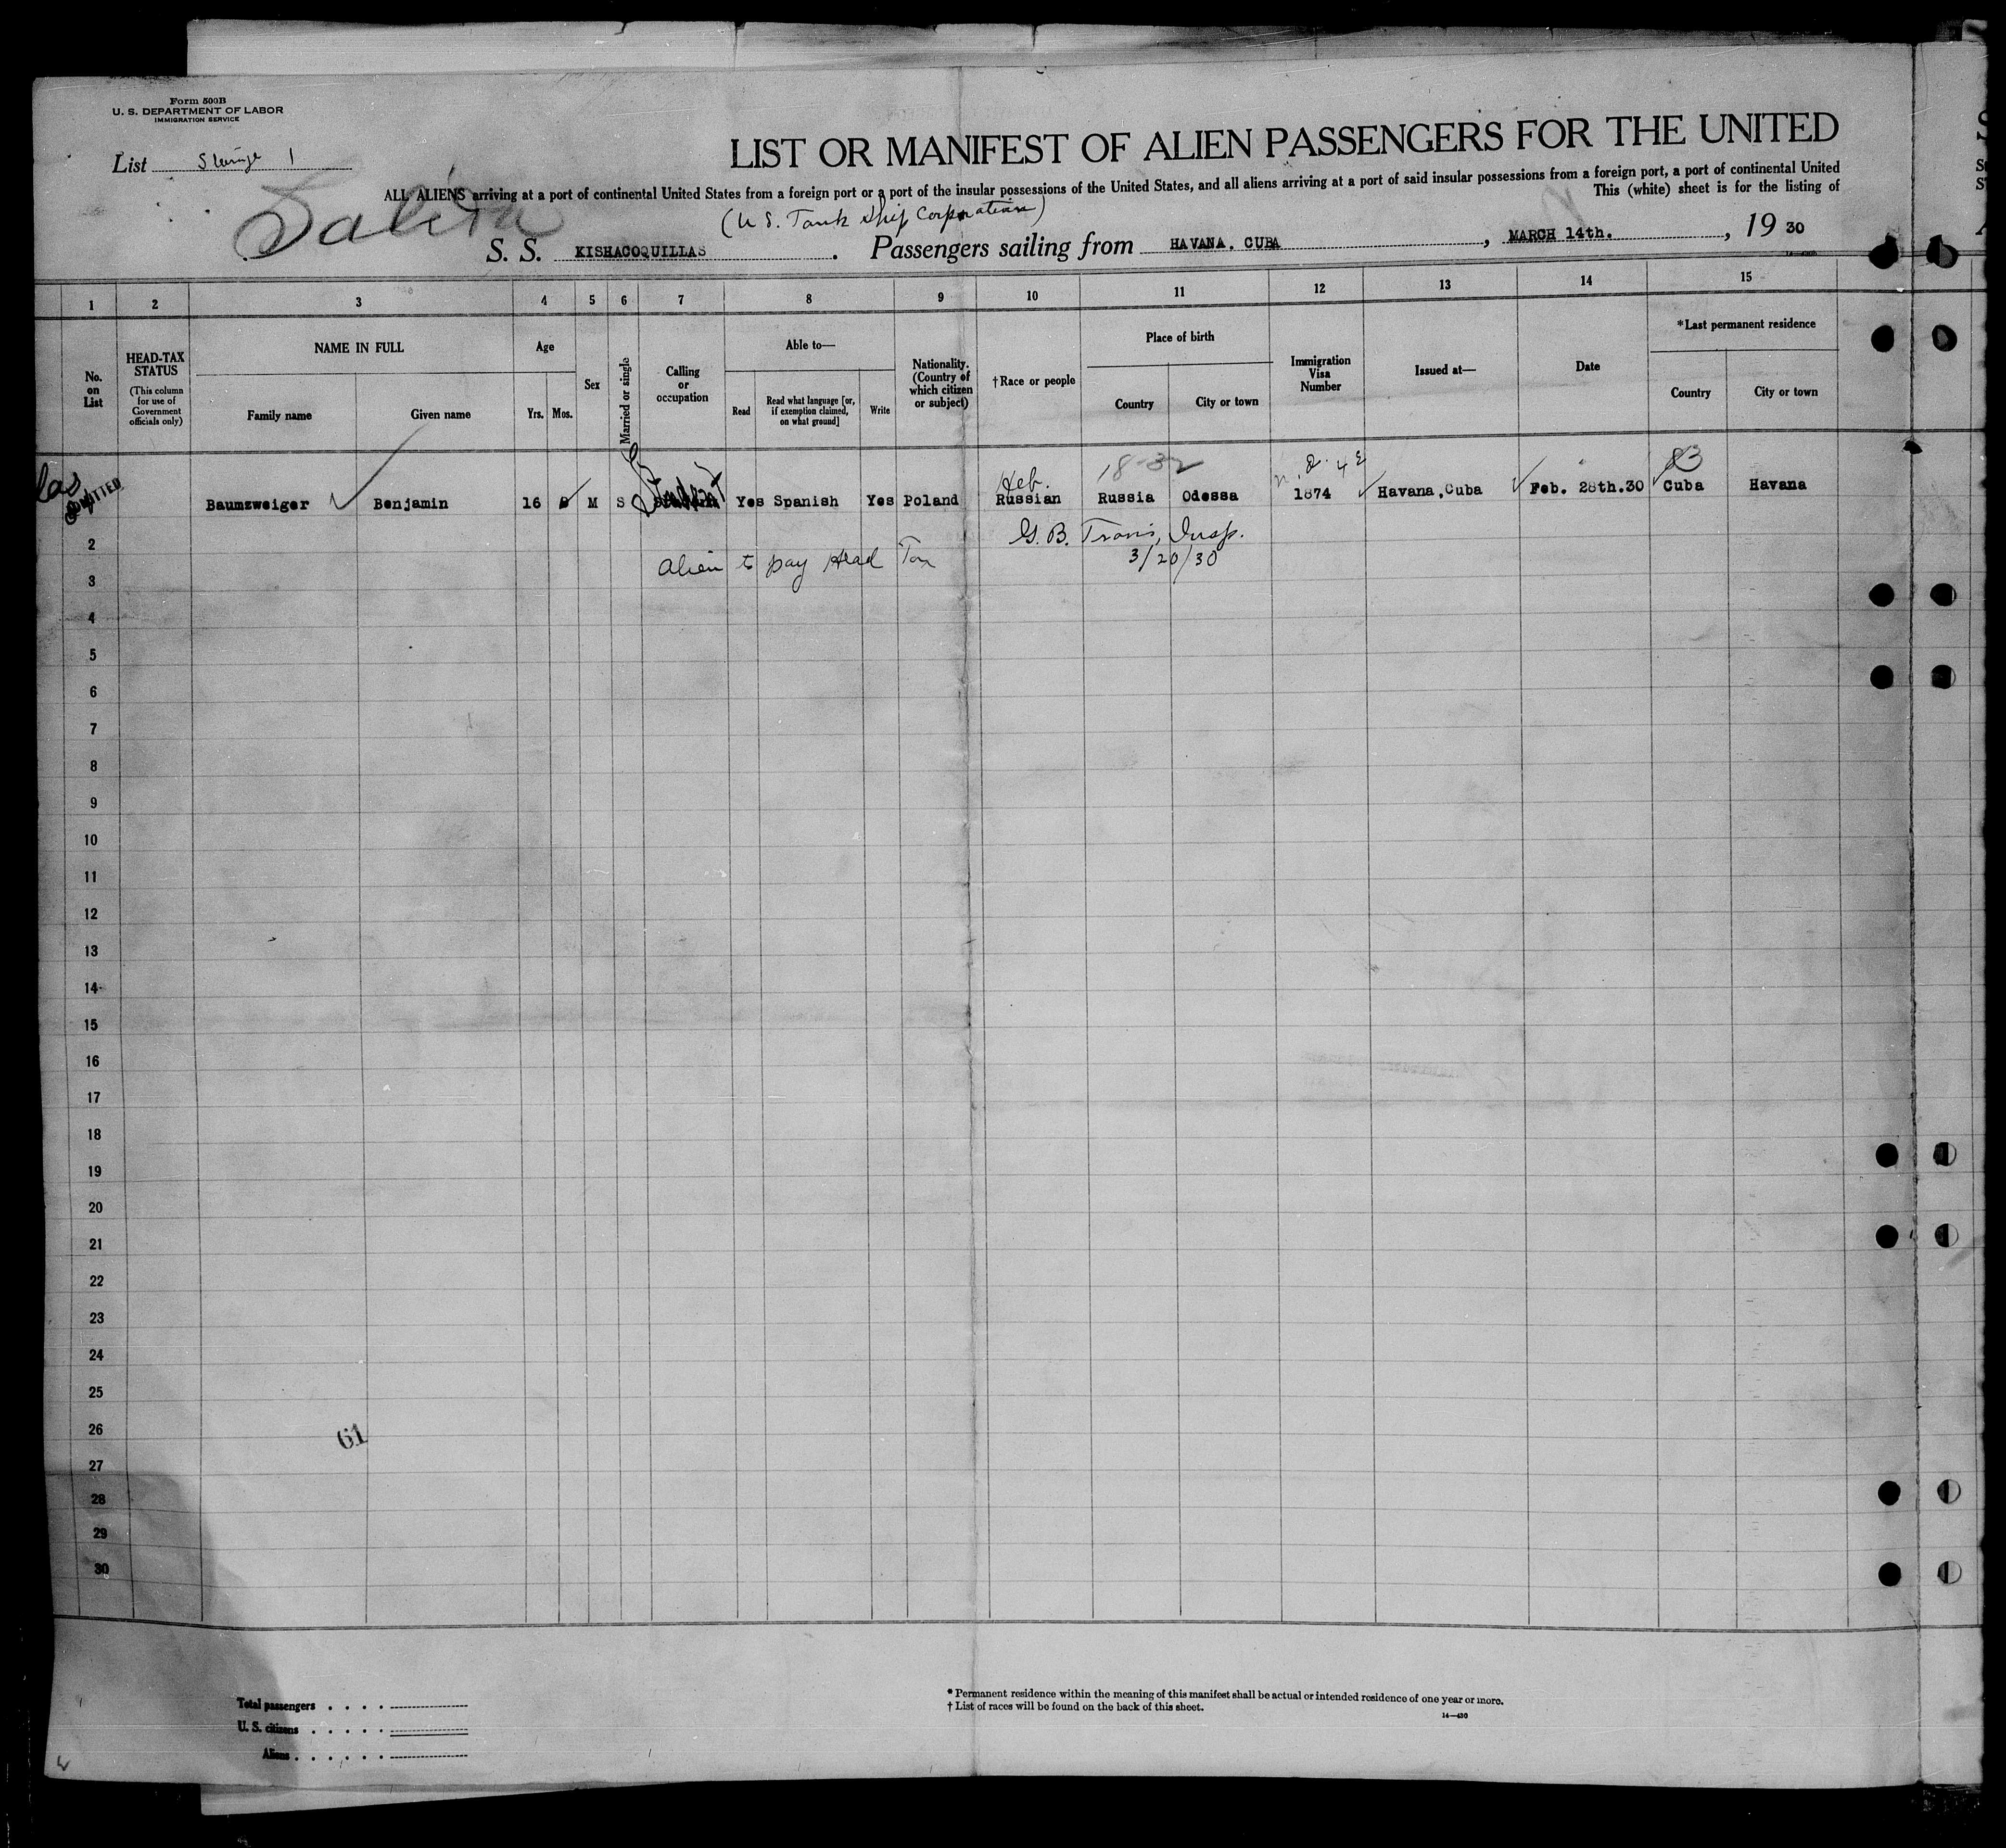 Form 500B
U. S. DEPARTMENT OF LABOR
IMMIGRATION SERVICE
List 1
LIST OR MANIFEST OF ALIEN PASSENGERS FOR THE UNITED
ALL ALIENS arriving at a port of continental United States from a foreign port or a port of the insular possessions of the United States, and all aliens arriving at a port of said insular possessions from a foreign port, a port of continental United
This (white) sheet is for the listing of
(U.S. Tank Ship Corporation)
S. S. KISHACOQUILLAS . Passengers sailing from HAVANA, CUBA , MARCH 14th. , 19 30
1 2 3 4 5 6 7 8 9 10 11 12 13 14 15
No. on List
HEAD-TAX STATUS
(This column for use of Government officials only)
NAME IN FULL
Family name Given name
Age
Yrs. Mos.
Sex
Married or single
Calling or occupation
Able to—
Read
Read what language [or, if exemption claimed, on what ground]
Write
Nationality. (Country of which citizen or subject)
†Race or people
Place of birth
Country City or town
Immigration Visa Number
Issued at—
Date
*Last permanent residence
Country City or town
ADMITTED
Heb. 18-32
Baumzweiger Benjamin 16 M S Student Yes Spanish Yes Poland Russian Russia Odessa 1874 Havana,Cuba Feb. 28th.30 Cuba Havana
G. B. Travis, Insp.
2
Alien to pay Head Tax 3/20/30
3
4
5
6
7
8
9
10
11
12
13
14
15
16
17
18
19
20
21
22
23
24
25
26
61
27
28
29
30
Total passengers . . . .
U. S. citizens . . . . .
Aliens . . . . . .
* Permanent residence within the meaning of this manifest shall be actual or intended residence of one year or more.
† List of races will be found on the back of this sheet.
14—430